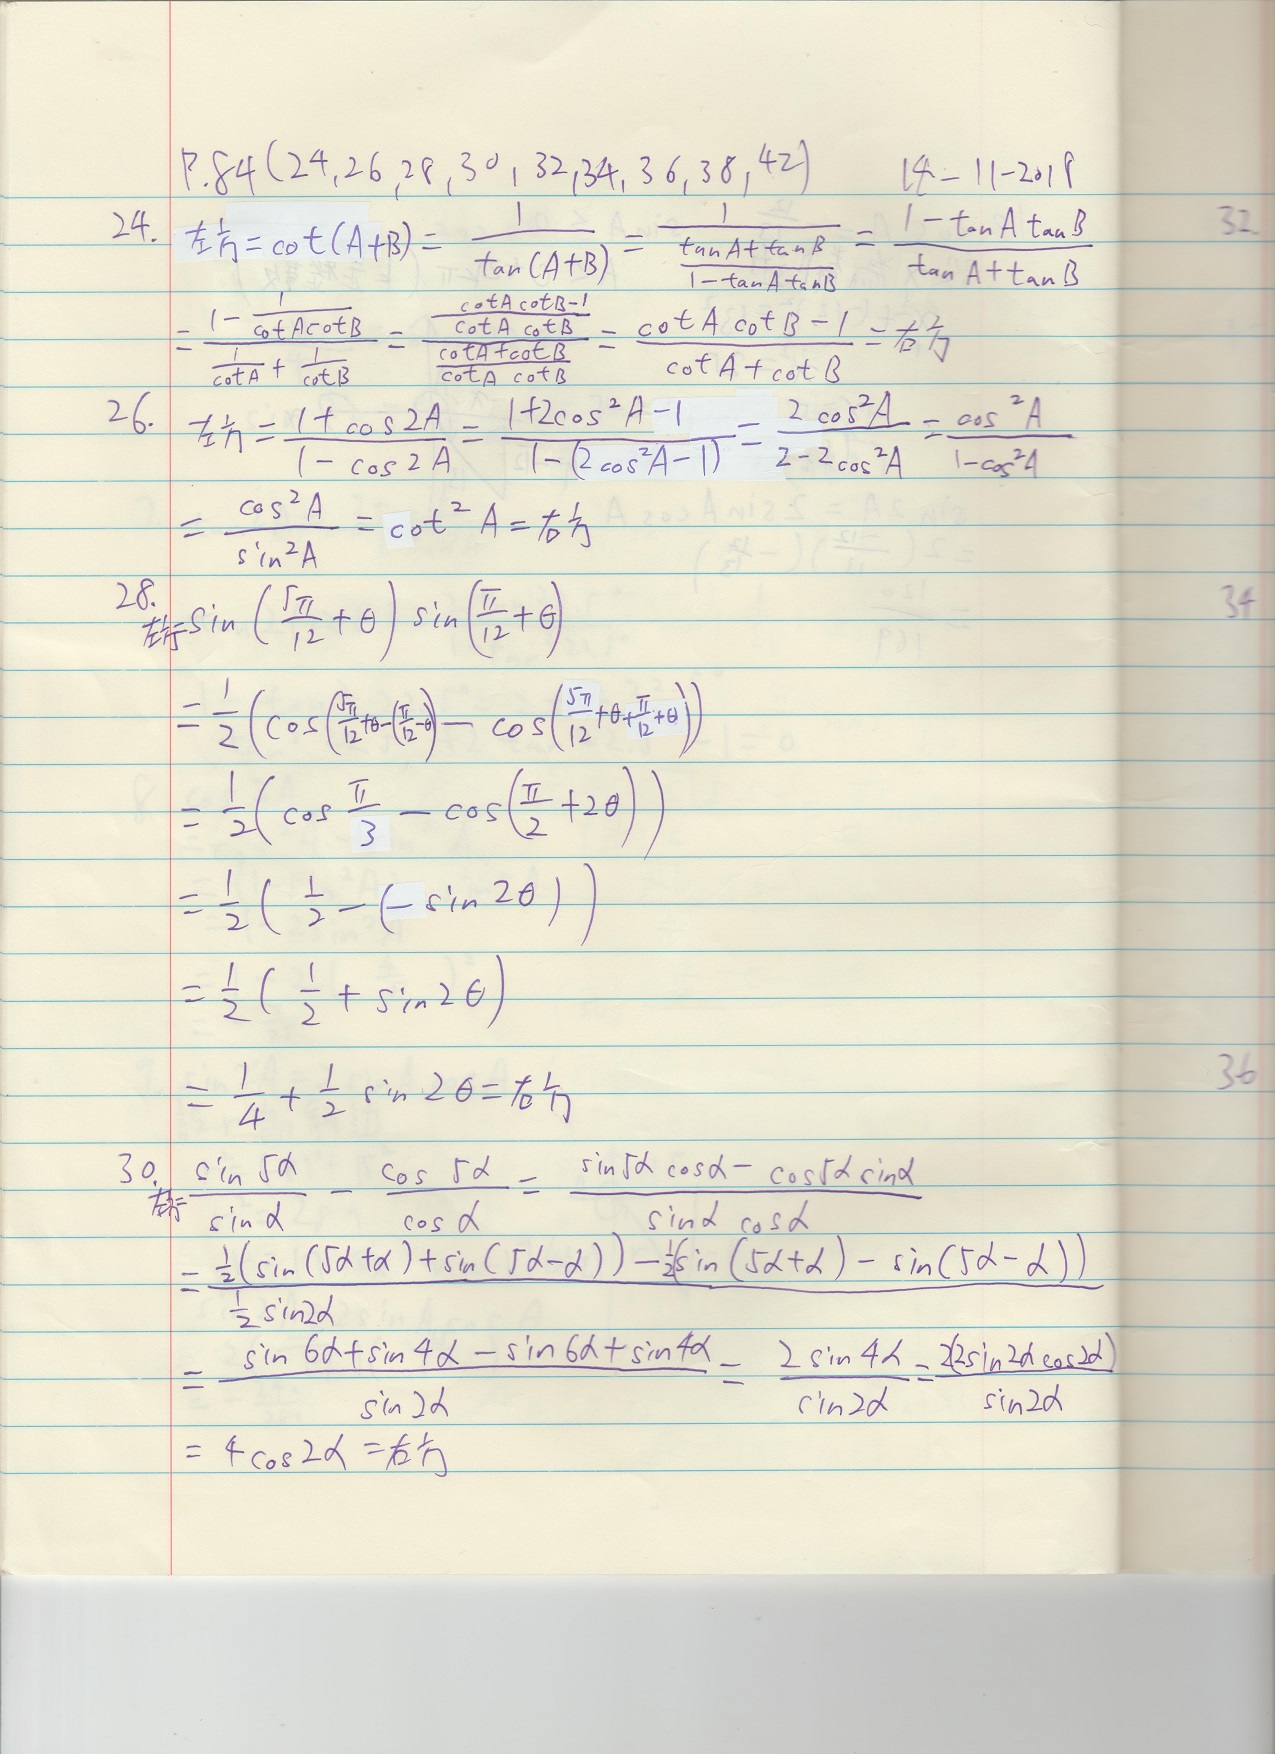 P.84(24,26,28,30,32,34,36,38,42) 14-11-2018
24. 左方=cot(A+B)=1/tan(A+B)=1/((tanA+tanB)/(1-tanA tanB))=(1-tanA tanB)/(tanA+tanB)
=(1-1/(cotA cotB))/(1/cotA+1/cotB)=((cotA cotB-1)/(cotA cotB))/((cotA+cotB)/(cotA cotB))=(cotA cotB-1)/(cotA+cotB)=右方
26. 左方=(1+cos2A)/(1-cos2A)=(1+2cos²A-1)/(1-(2cos²A-1))=(2cos²A)/(2-2cos²A)=cos²A/(1-cos²A)
=cos²A/sin²A=cot²A=右方
28.
左方=sin(5π/12+θ)sin(π/12+θ)
=1/2(cos(5π/12+θ-(π/12-θ))-cos(5π/12+θ+π/12+θ))
=1/2(cos π/3-cos(π/2+2θ))
=1/2(1/2-(-sin2θ))
=1/2(1/2+sin2θ)
=1/4+1/2 sin2θ=右方
30. 左方=sin5α/sinα-cos5α/cosα=(sin5α cosα-cos5α sinα)/(sinα cosα)
=(1/2(sin(5α+α)+sin(5α-α))-1/2(sin(5α+α)-sin(5α-α)))/(1/2 sin2α)
=(sin6α+sin4α-sin6α+sin4α)/sin2α=2sin4α/sin2α=2(2sin2αcos2α)/sin2α
=4cos2α=右方
32
34
36